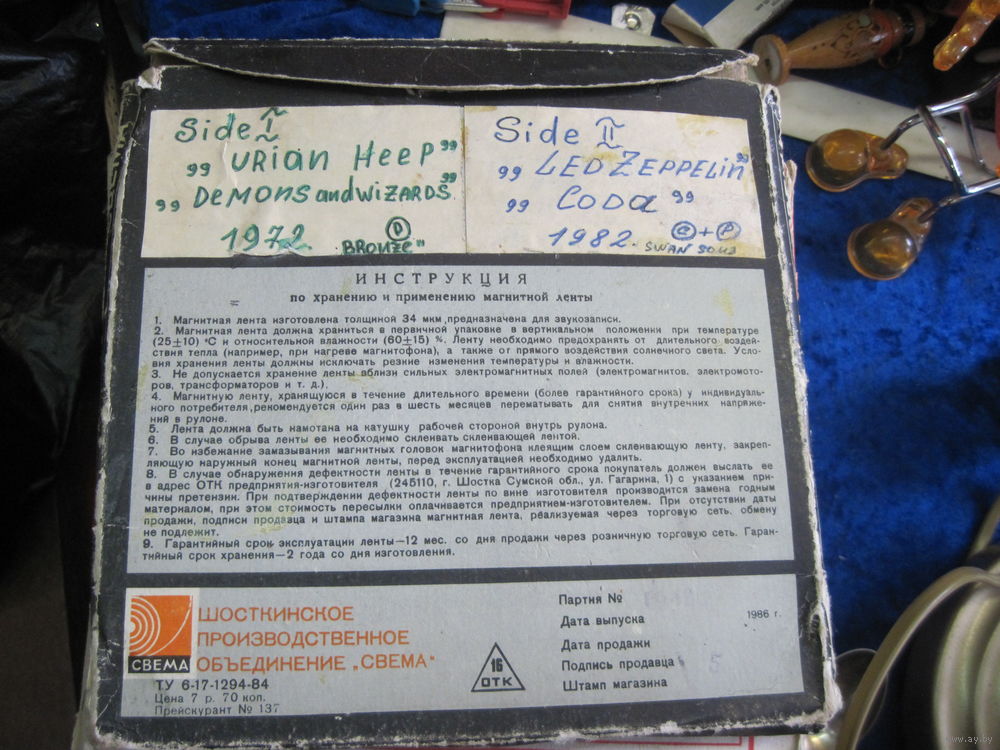 Side I
„ URIAN HEEP"
„ DEMONS and WIZARDS"
1972 Ⓟ BRONZE"
Side II
„ LED ZEPPELIN"
„ CODA "
1982. ©+Ⓟ
SWAN SONG
ИНСТРУКЦИЯ
по хранению и применению магнитной ленты
1. Магнитная лента изготовлена толщиной 34 мкм, предназначена для звукозаписи.
2. Магнитная лента должна храниться в первичной упаковке в вертикальном положении при температуре
(25±10) °С и относительной влажности (60±15) %. Ленту необходимо предохранять от длительного воздей-
ствия тепла (например, при нагреве магнитофона), а также от прямого воздействия солнечного света. Усло-
вия хранения ленты должны исключать резкие изменения температуры и влажности.
3. Не допускается хранение ленты вблизи сильных электромагнитных полей (электромагнитов, электромото-
ров, трансформаторов и т. д.).
4. Магнитную ленту, хранящуюся в течение длительного времени (более гарантийного срока) у индивидуаль-
ного потребителя, рекомендуется один раз в шесть месяцев перематывать для снятия внутренних напряже-
ний в рулоне.
5. Лента должна быть намотана на катушку рабочей стороной внутрь рулона.
6. В случае обрыва ленты ее необходимо склеивать склеивающей лентой.
7. Во избежание замазывания магнитных головок клеящим слоем склеивающую ленту, закреп-
ляющую наружный конец магнитной ленты, перед эксплуатацией необходимо удалить.
8. В случае обнаружения дефектности ленты в течение гарантийного срока покупатель должен выслать ее
в адрес ОТК предприятия-изготовителя (245110, г. Шостка Сумской обл., ул. Гагарина, 1) с указанием при-
чины претензии. При подтверждении дефектности ленты по вине изготовителя производится замена годным
материалом, при этом стоимость пересылки оплачивается предприятием-изготовителем. При отсутствии даты
продажи, подписи продавца и штампа магазина магнитная лента, реализуемая через торговую сеть, обмену
не подлежит.
9. Гарантийный срок эксплуатации ленты—12 мес. со дня продажи через розничную торговую сеть. Гаран-
тийный срок хранения—2 года со дня изготовления.
СВЕМА
ШОСТКИНСКОЕ
ПРОИЗВОДСТВЕННОЕ
ОБЪЕДИНЕНИЕ „СВЕМА"
ТУ 6-17-1294-84
Цена 7 р. 70 коп.
Прейскурант № 137
16
ОТК
Партия №
Дата выпуска 1986 г.
Дата продажи
Подпись продавца 5
Штамп магазина
www.ay.by